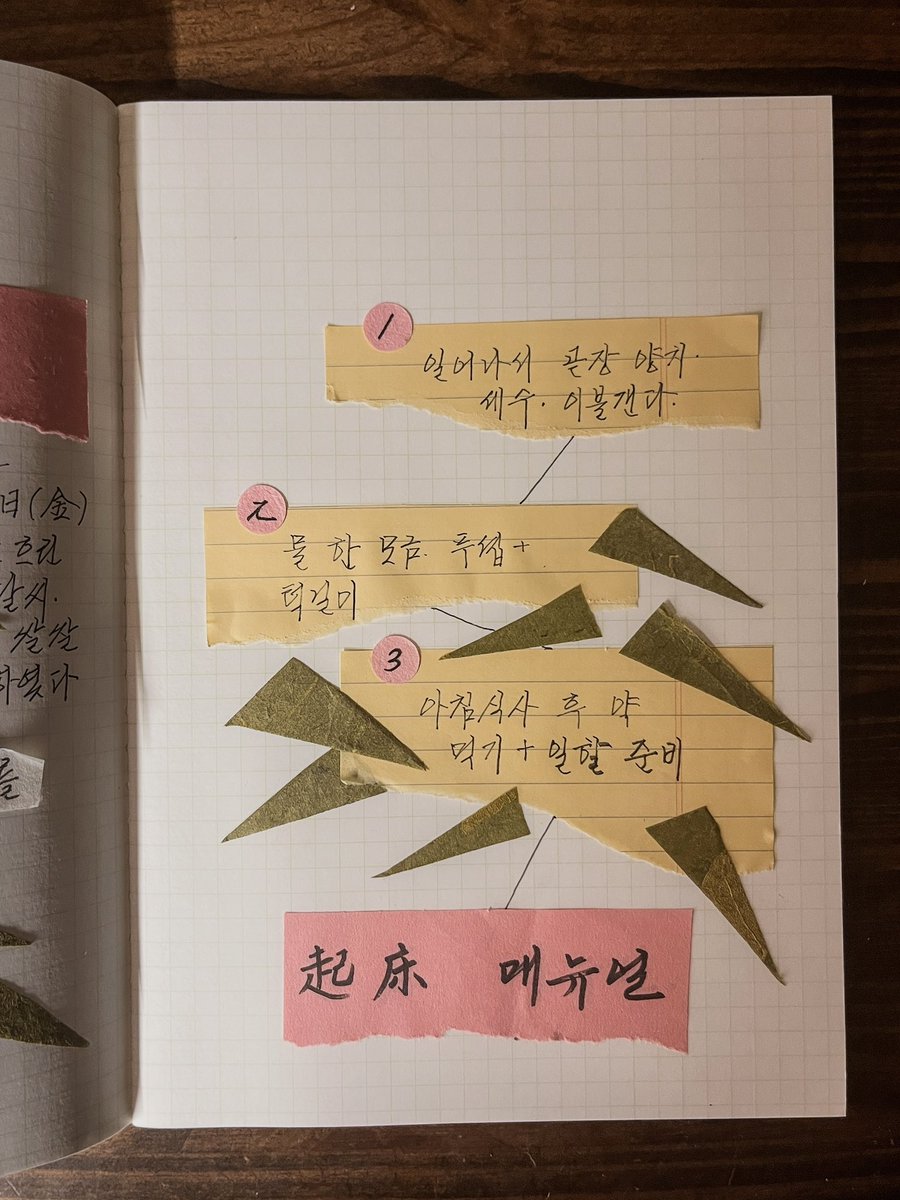 日(金)
흐린
쌀쌀
하였다
를
1
일어나서 곧장 양치.
세수. 이불갠다.
2
물 한 모금. 푸쉽+
턱걸이
3
아침식사 후 약
먹기 + 일할 준비
起床 매뉴얼